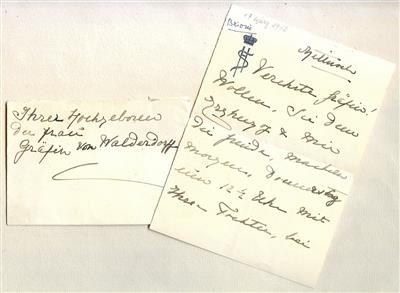 Ihrer Hochgeboren
der Frau
Gräfin von Walderdorff
Brioni
Mittwoch
Verehrte Gräfin!
Wollen Sie dem
Erzherzog & mir
die Freude machen
morgen, Donnerstag
um 12½ Uhr mit
Ihren Töchtern, bei